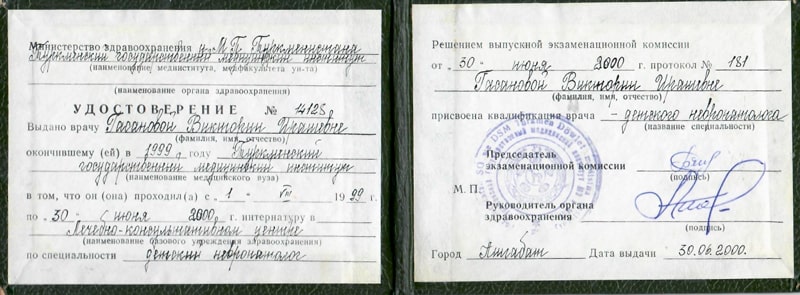 Министерство здравоохранения и М.П. Туркменистана
Туркменский государственный медицинский институт
(наименование мединститута, медфакультета ун-та)
(наименование органа здравоохранения)
УДОСТОВЕРЕНИЕ № 14128
Выдано врачу Гасановой Виктории
(фамилия, имя, отчество)
окончившему (ей) в 1999 году Туркменский
государственный медицинский институт
(наименование медицинского вуза)
в том, что он (она) проходил(а) с 1 VIII 1999 г.
по 30 июня 2000 г. интернатуру в
Лечебно-консультативном центре
(наименование базового учреждения здравоохранения)
по специальности детский невропатолог
Решением выпускной экзаменационной комиссии
от 30 июня 2000 г. протокол № 181
Гасановой Виктории
(фамилия, имя, отчество)
присвоена квалификация врача - детского невропатолога
(название специальности)
Председатель
экзаменационной комиссии
(подпись)
М. П.
Руководитель органа
здравоохранения
(подпись)
Город Ашгабат Дата выдачи 30.06.2000.